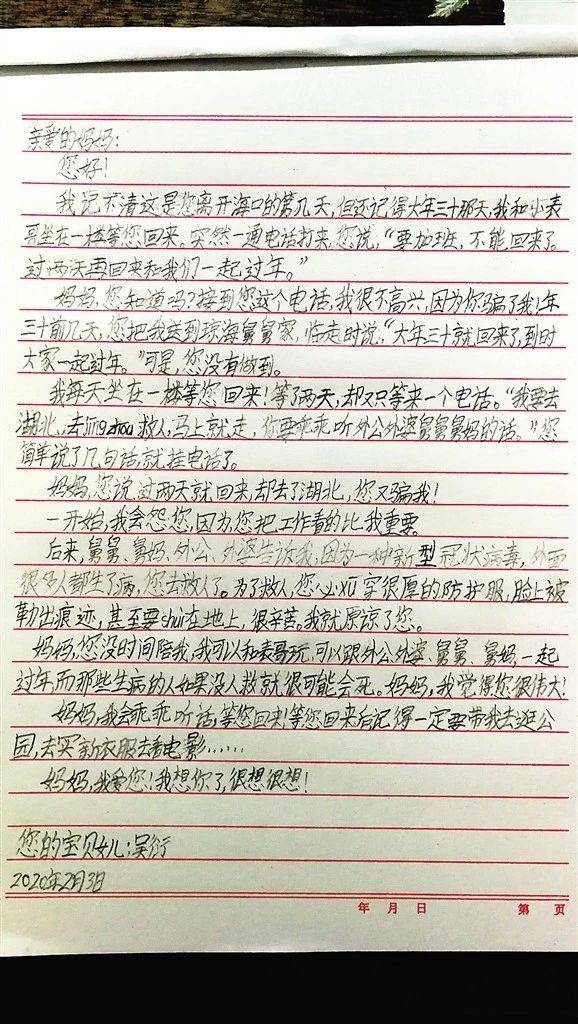 亲爱的妈妈：
您好！
我记不清这是您离开海口的第几天，但还记得大年三十那天，我和小表
哥坐在一楼等您回来。突然一通电话打来，您说，“要加班，不能回来了。
过两天再回来和我们一起过年。”
妈妈，您知道吗？接到您这个电话，我很不高兴，因为你骗了我！年
三十前几天，您把我送到琼海舅舅家，临走时说，“大年三十就回来了，到时
大家一起过年。”可是，您没有做到。
我每天坐在一楼等您回来！等了两天，却又只等来一个电话。“我要去
湖北，去jīng zhou救人，马上就走，你要乖乖听外公外婆舅舅舅妈的话。”您
简单说了几句话，就挂电话了。
妈妈，您说过两天就回来，却去了湖北，您又骗我！
一开始，我会怨您，因为您把工作看的比我重要。
后来，舅舅、舅妈、外公、外婆告诉我，因为一种新型冠状病毒，外面
很多人都生了病，您去救人了。为了救人，您必xū穿很厚的防护服，脸上被
勒出痕迹，甚至要shuì在地上，很辛苦。我就原谅了您。
妈妈，您没时间陪我，我可以和表哥玩，可以跟外公外婆、舅舅、舅妈一起
过年，而那些生病的人如果没人救就很可能会死。妈妈，我觉得您很伟大！
妈妈，我会乖乖听话，等您回来！等您回来后记得一定要带我去逛公
园，去买新衣服去看电影……
妈妈，我爱您！我想你了，很想很想！
您的宝贝女儿：吴衍
2020年2月3日
年 月 日 第 页